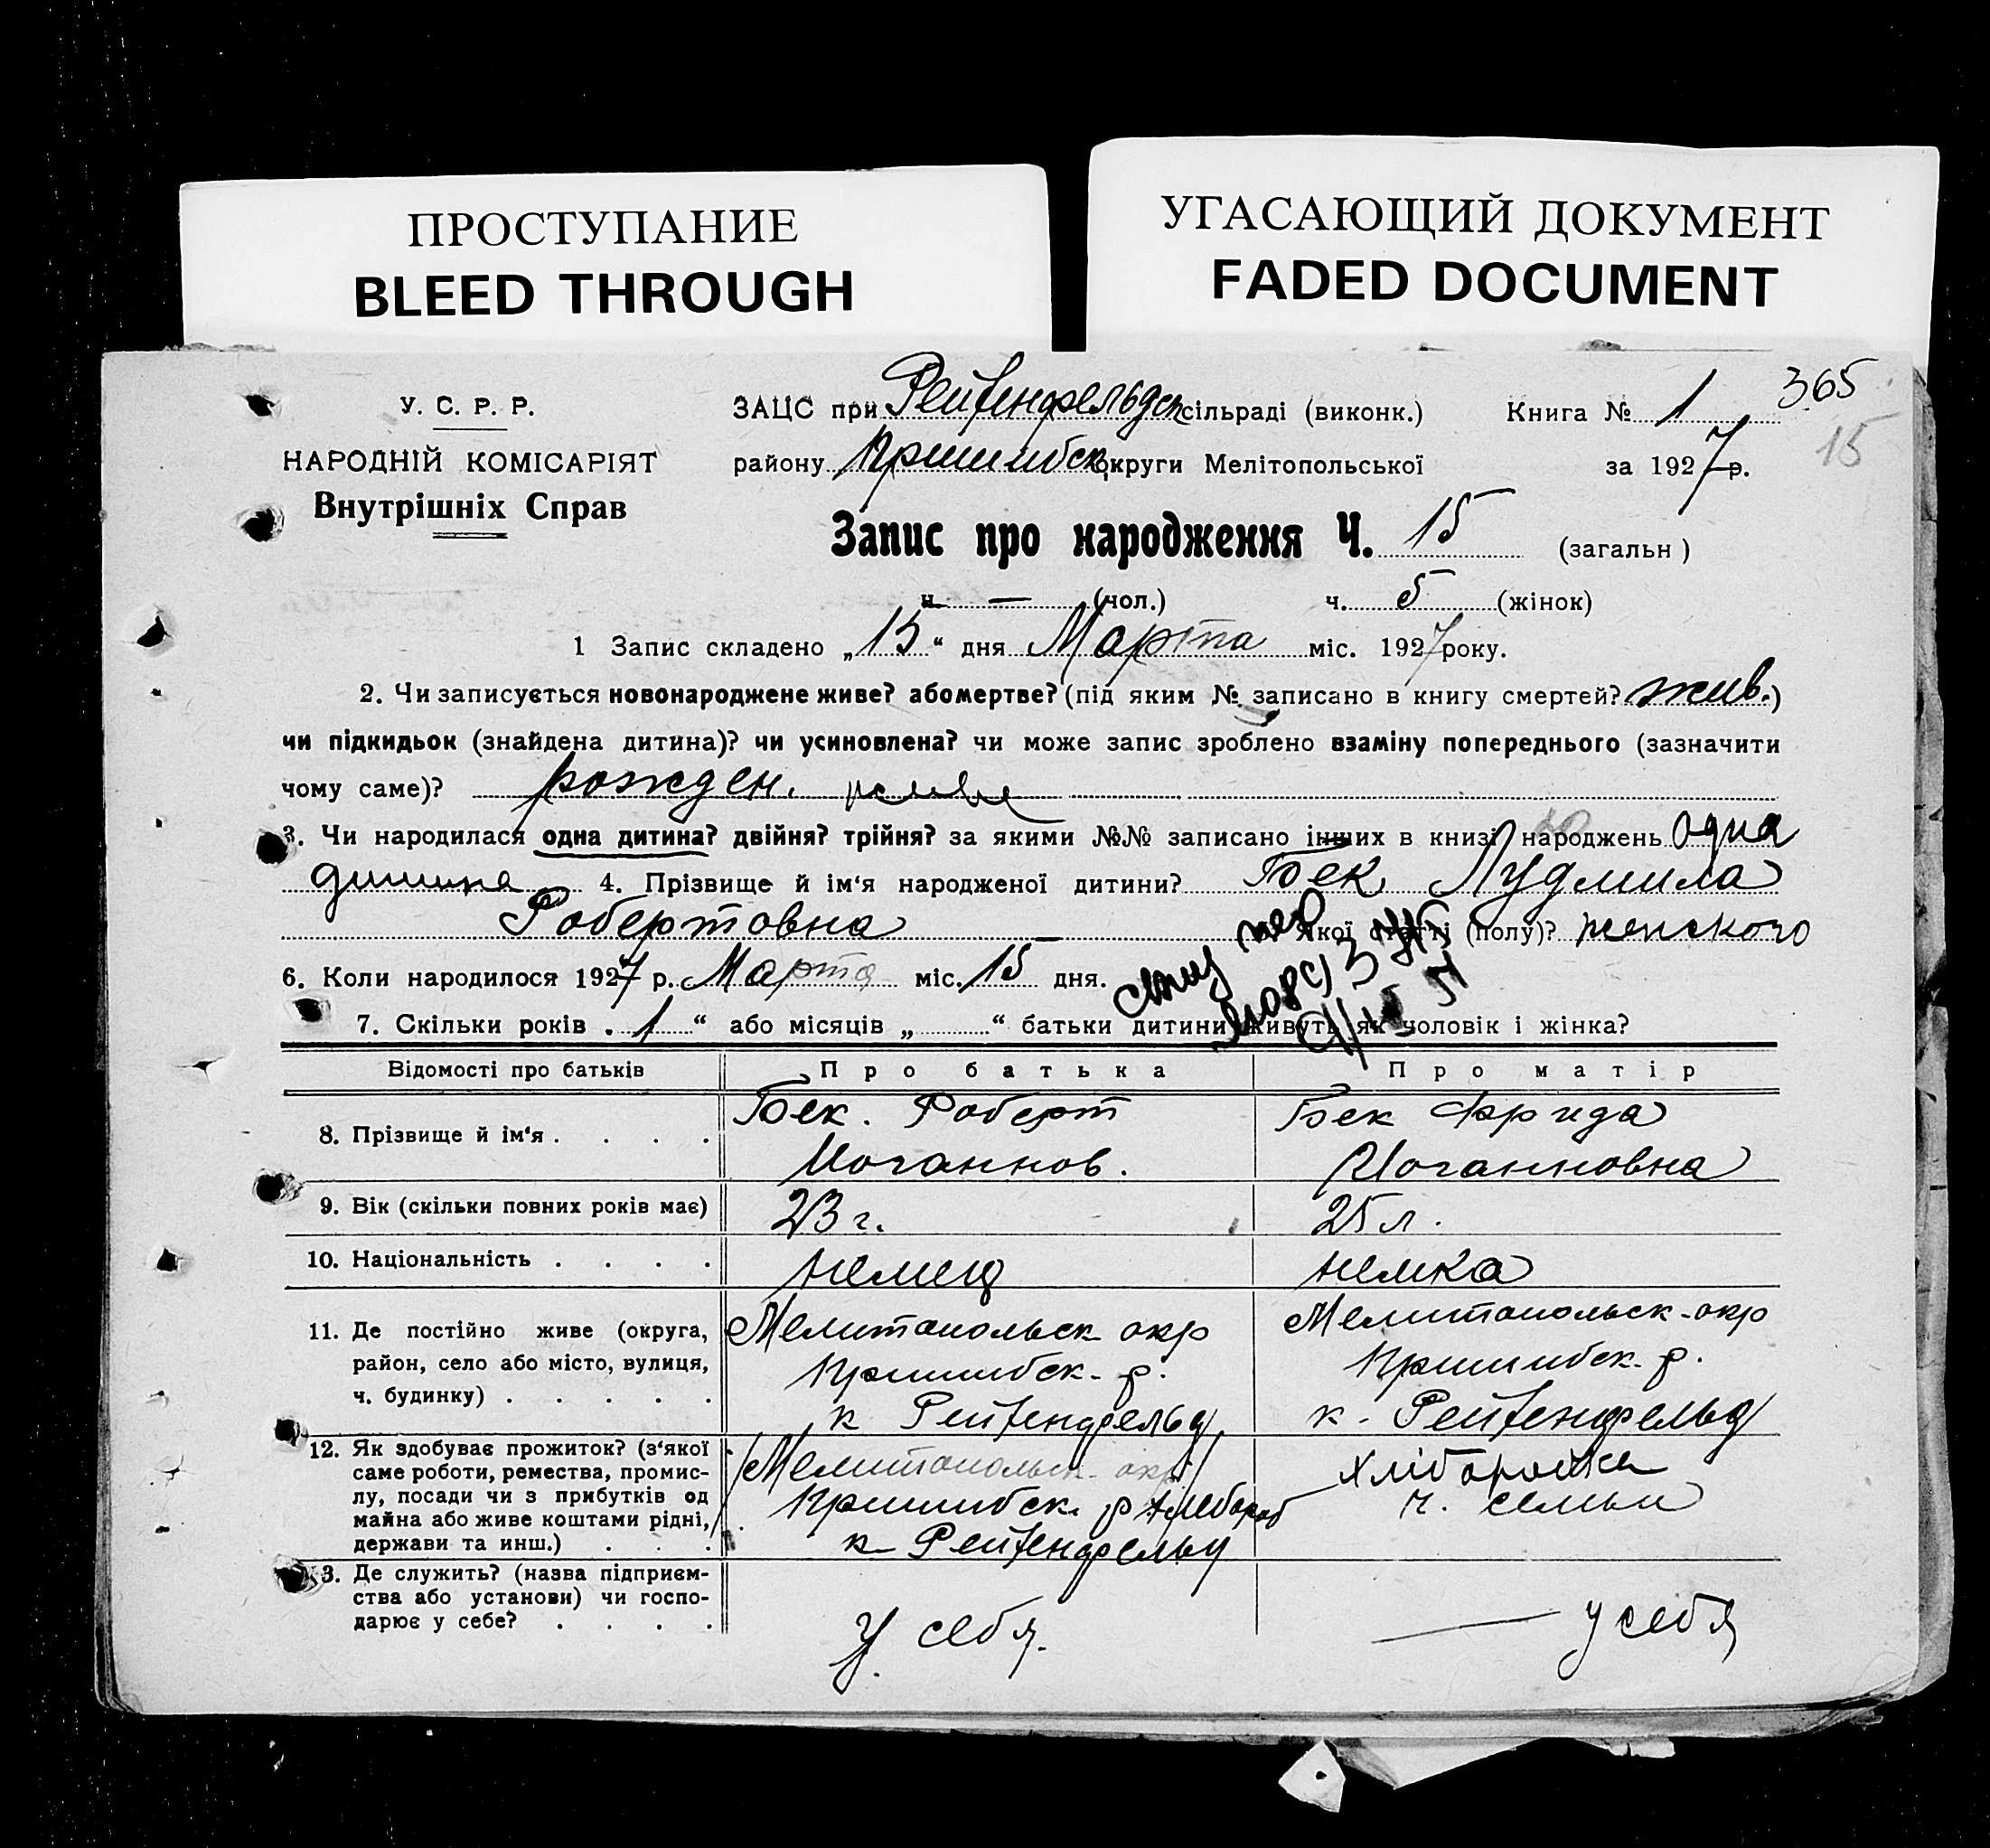 ПРОСТУПАНИЕ
BLEED THROUGH
УГАСАЮЩИЙ ДОКУМЕНТ
FADED DOCUMENT
365
15
У. С. Р. Р.
НАРОДНІЙ КОМІСАРІЯТ
Внутрішніх Справ
ЗАЦС при Рейхенфельдск сільраді (виконк.) Книга № 1
району Пришибск округи Мелітопольської за 1927 р.
Запис про народження Ч. 15 (загальн)
ч. — (чол.) ч. 5 (жінок)
1 Запис складено „15“ дня Марта міс. 1927 року.
2. Чи записується новонароджене живе? або мертве? (під яким № записано в книгу смертей? жив.)
чи підкидьок (знайдена дитина)? чи усиновлена? чи може запис зроблено взаміну попереднього (зазначити
чому саме)? рожден. живе
3. Чи народилася одна дитина? двійня? трійня? за якими №№ записано інших в книзі народжень одна
дитина 4. Прізвище й ім‘я народженої дитини? Бек Лудмила
Робертовна якої статті (полу)? женского
6. Коли народилося 1927 р. Марта міс. 15 дня.
7. Скільки років „1“ або місяців „ “ батьки дитини живуть як чоловік і жінка?
Відомості про батьків Про батька Про матір
8. Прізвище й ім‘я . . . .
Бек. Роберт
Иоганнов.
Бек Фрида
Иоганновна
9. Вік (скільки повних років має) 23 г. 25 л.
10. Національність . . . . немец немка
11. Де постійно живе (округа,
район, село або місто, вулиця,
ч. будинку) . . . . .
Мелитопольск окр
Пришибск. р.
к Рейхенфельд
Мелитопольск. окр
Пришибск. р.
к. Рейхенфельд
12. Як здобуває прожиток? (з‘якої
саме роботи, ремества, промис-
лу, посади чи з прибутків од
майна або живе коштами рідні,
держави та инш.) . . .
Мелитопольск. окр
Пришибск. р хлебороб
к Рейхенфельд
ч. семьи
13. Де служить? (назва підприєм-
ства або установи) чи госпо-
дарює у себе? . . . .
У себя.
— у себя